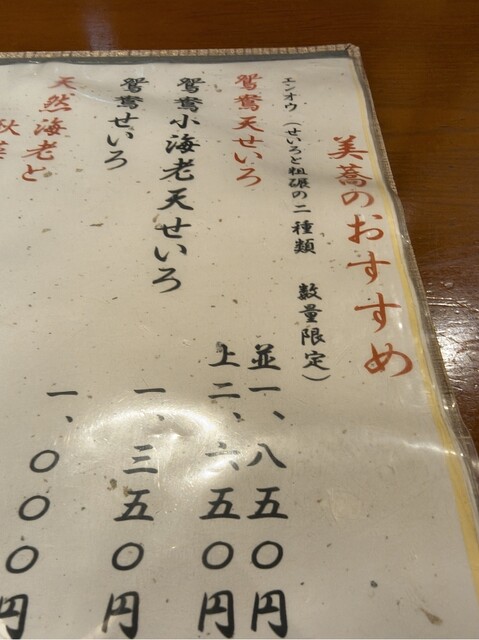 美蕎のおすすめ
エンオウ(せいろと粗碾の二種類 数量限定)
鴛鴦天せいろ 並一、八五〇円
上二、六五〇円
鴛鴦小海老天せいろ 一、三五〇円
鴛鴦せいろ 一、〇〇〇円
天然海老と